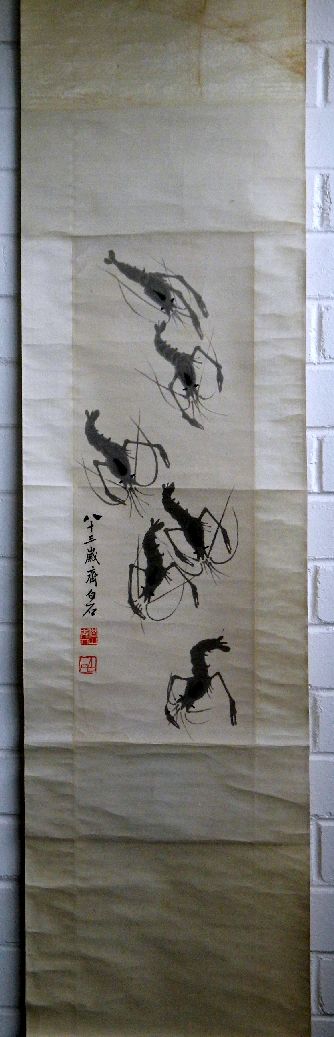 八十三歲齊白石